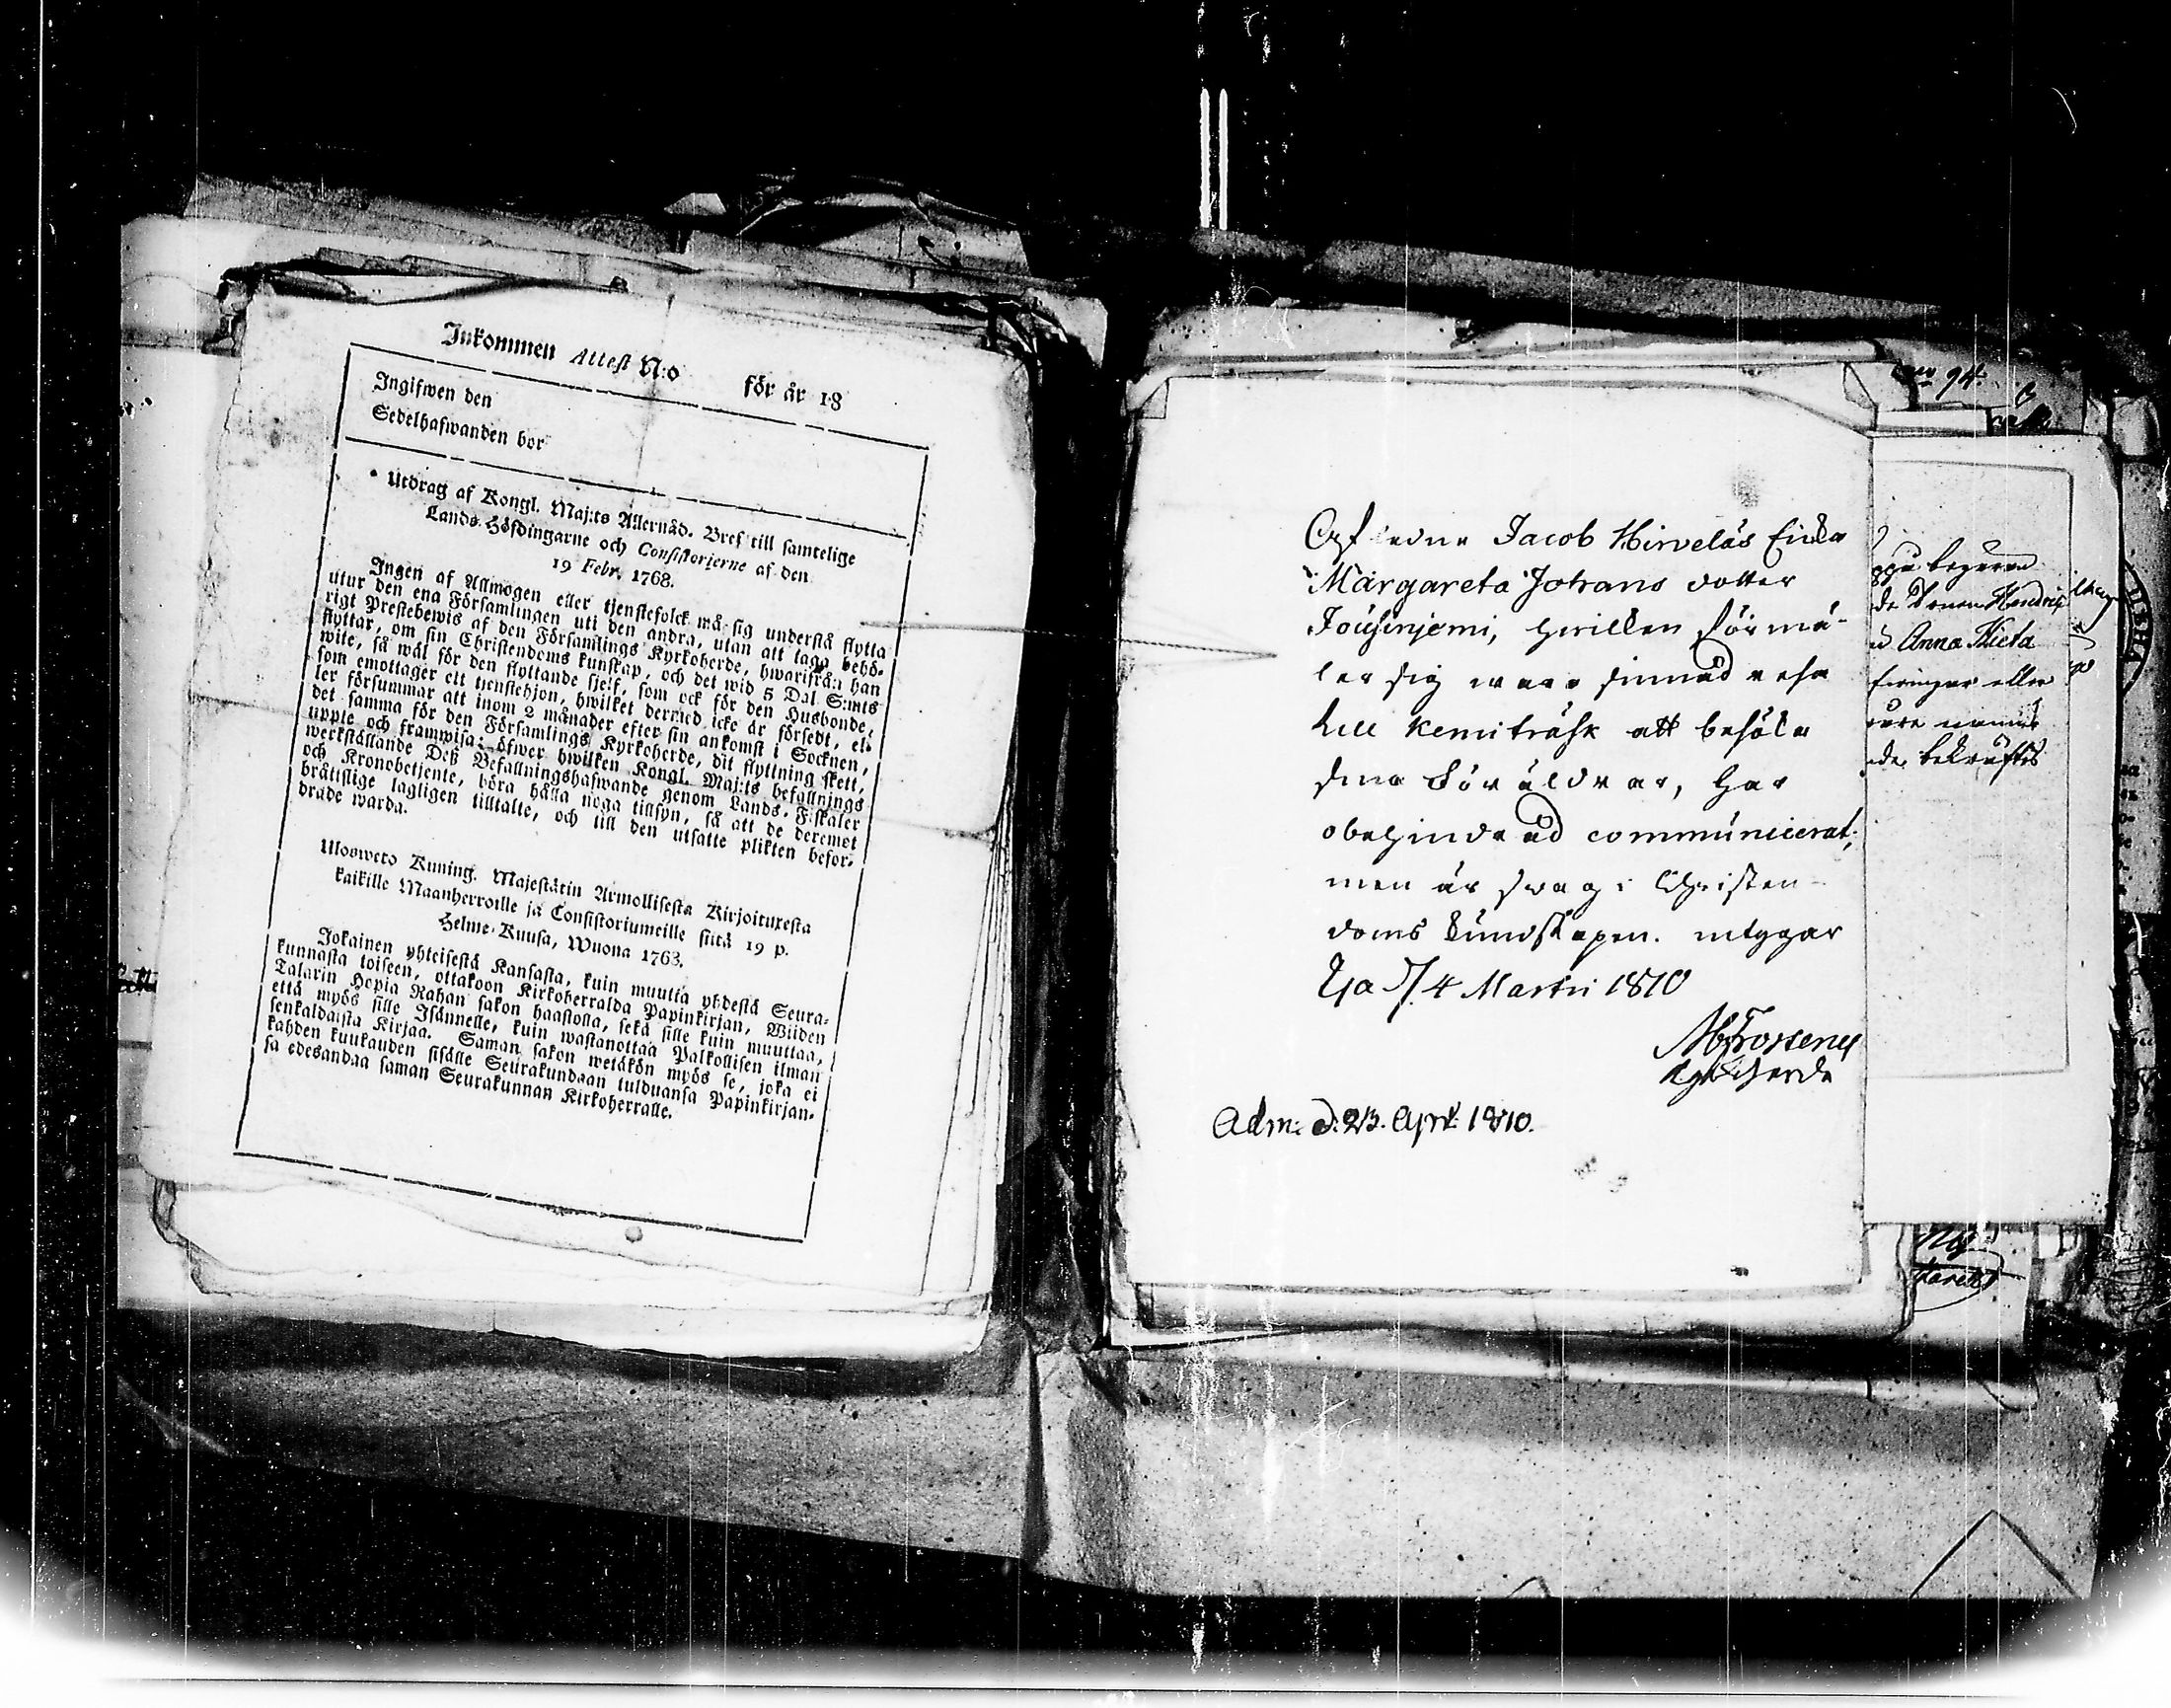 Inkommen Attest N:o för år 18
Ingifwen den
Sedelhafwanden bor
Utdrag af Kongl. Maj:ts Allernåd. Bref till samtelige
Lands-Höfdingarne och Consistorierne af den
19 Febr. 1768.
Ingen af Allmogen eller tjenstefolck må sig understå flytta
utur den ena Församlingen uti den andra, utan att taga behö-
rigt Prestebewis af den Församlings Kyrkoherde, hwarifrån han
flyttar, om sin Christendoms kunskap, och det wid 5 Dal S:mts
wite, så wäl för den flyttande sjelf, som ock för den Husbonde,
som emottager ett tjenstehjon, hwilket dermed icke är försedt, el-
ler försummar att inom 2 månader efter sin ankomst i Socknen,
det samma för den Församlings Kyrkoherde, dit flyttning skett,
uppte och framwisa; öfwer hwilken Kongl. Maj:ts befallnings
werkställande Deß Befallningshafwande genom Lands-Fiskaler
och Kronobetjente, böra hålla noga tillsyn, så att de deremot
bråttslige lagligen tilltalte, och till den utsatte plikten befor-
drade warda.
Ulosweto Kuning. Majestätin Armollisesta Kirjoituxesta
kaikille Maanherroille ja Consistoriumeille siitä 19 p.
Helme-Kuusa, Wuona 1763.
Jokainen yhteisestä Kansasta, kuin muutta yhdestä Seura-
kunnasta toiseen, ottakoon Kirkoherralda Papinkirjan, Wiiden
Talarin Hopia Rahan sakon haastolla, sekä sille kuin muuttaa,
että myös sille Isännelle, kuin wastanottaa Palkollisen ilman
senkaldaista Kirjaa. Saman sakon wetäkön myös se, joka ei
kahden kuukauden sisälle Seurakundaan tulduansa Papinkirjan-
sa edesandaa saman Seurakunnan Kirkoherralle.
Jacob Hirveläs Enka
Margareta Johans dotter
Jousinjemi, hvilken förmä-
ler sig wara sinnad resa
till Kemiträsk att besöka
sina Föräldrar, har
obehindrad communicerat;
men är swag i Christen-
doms kundskapen.
d. 4 Martii 1810
Kyrkoherde
Adm: d. 23. Apr. 1810.
94.
begäran
Anna Kieta
eller
bekräftes